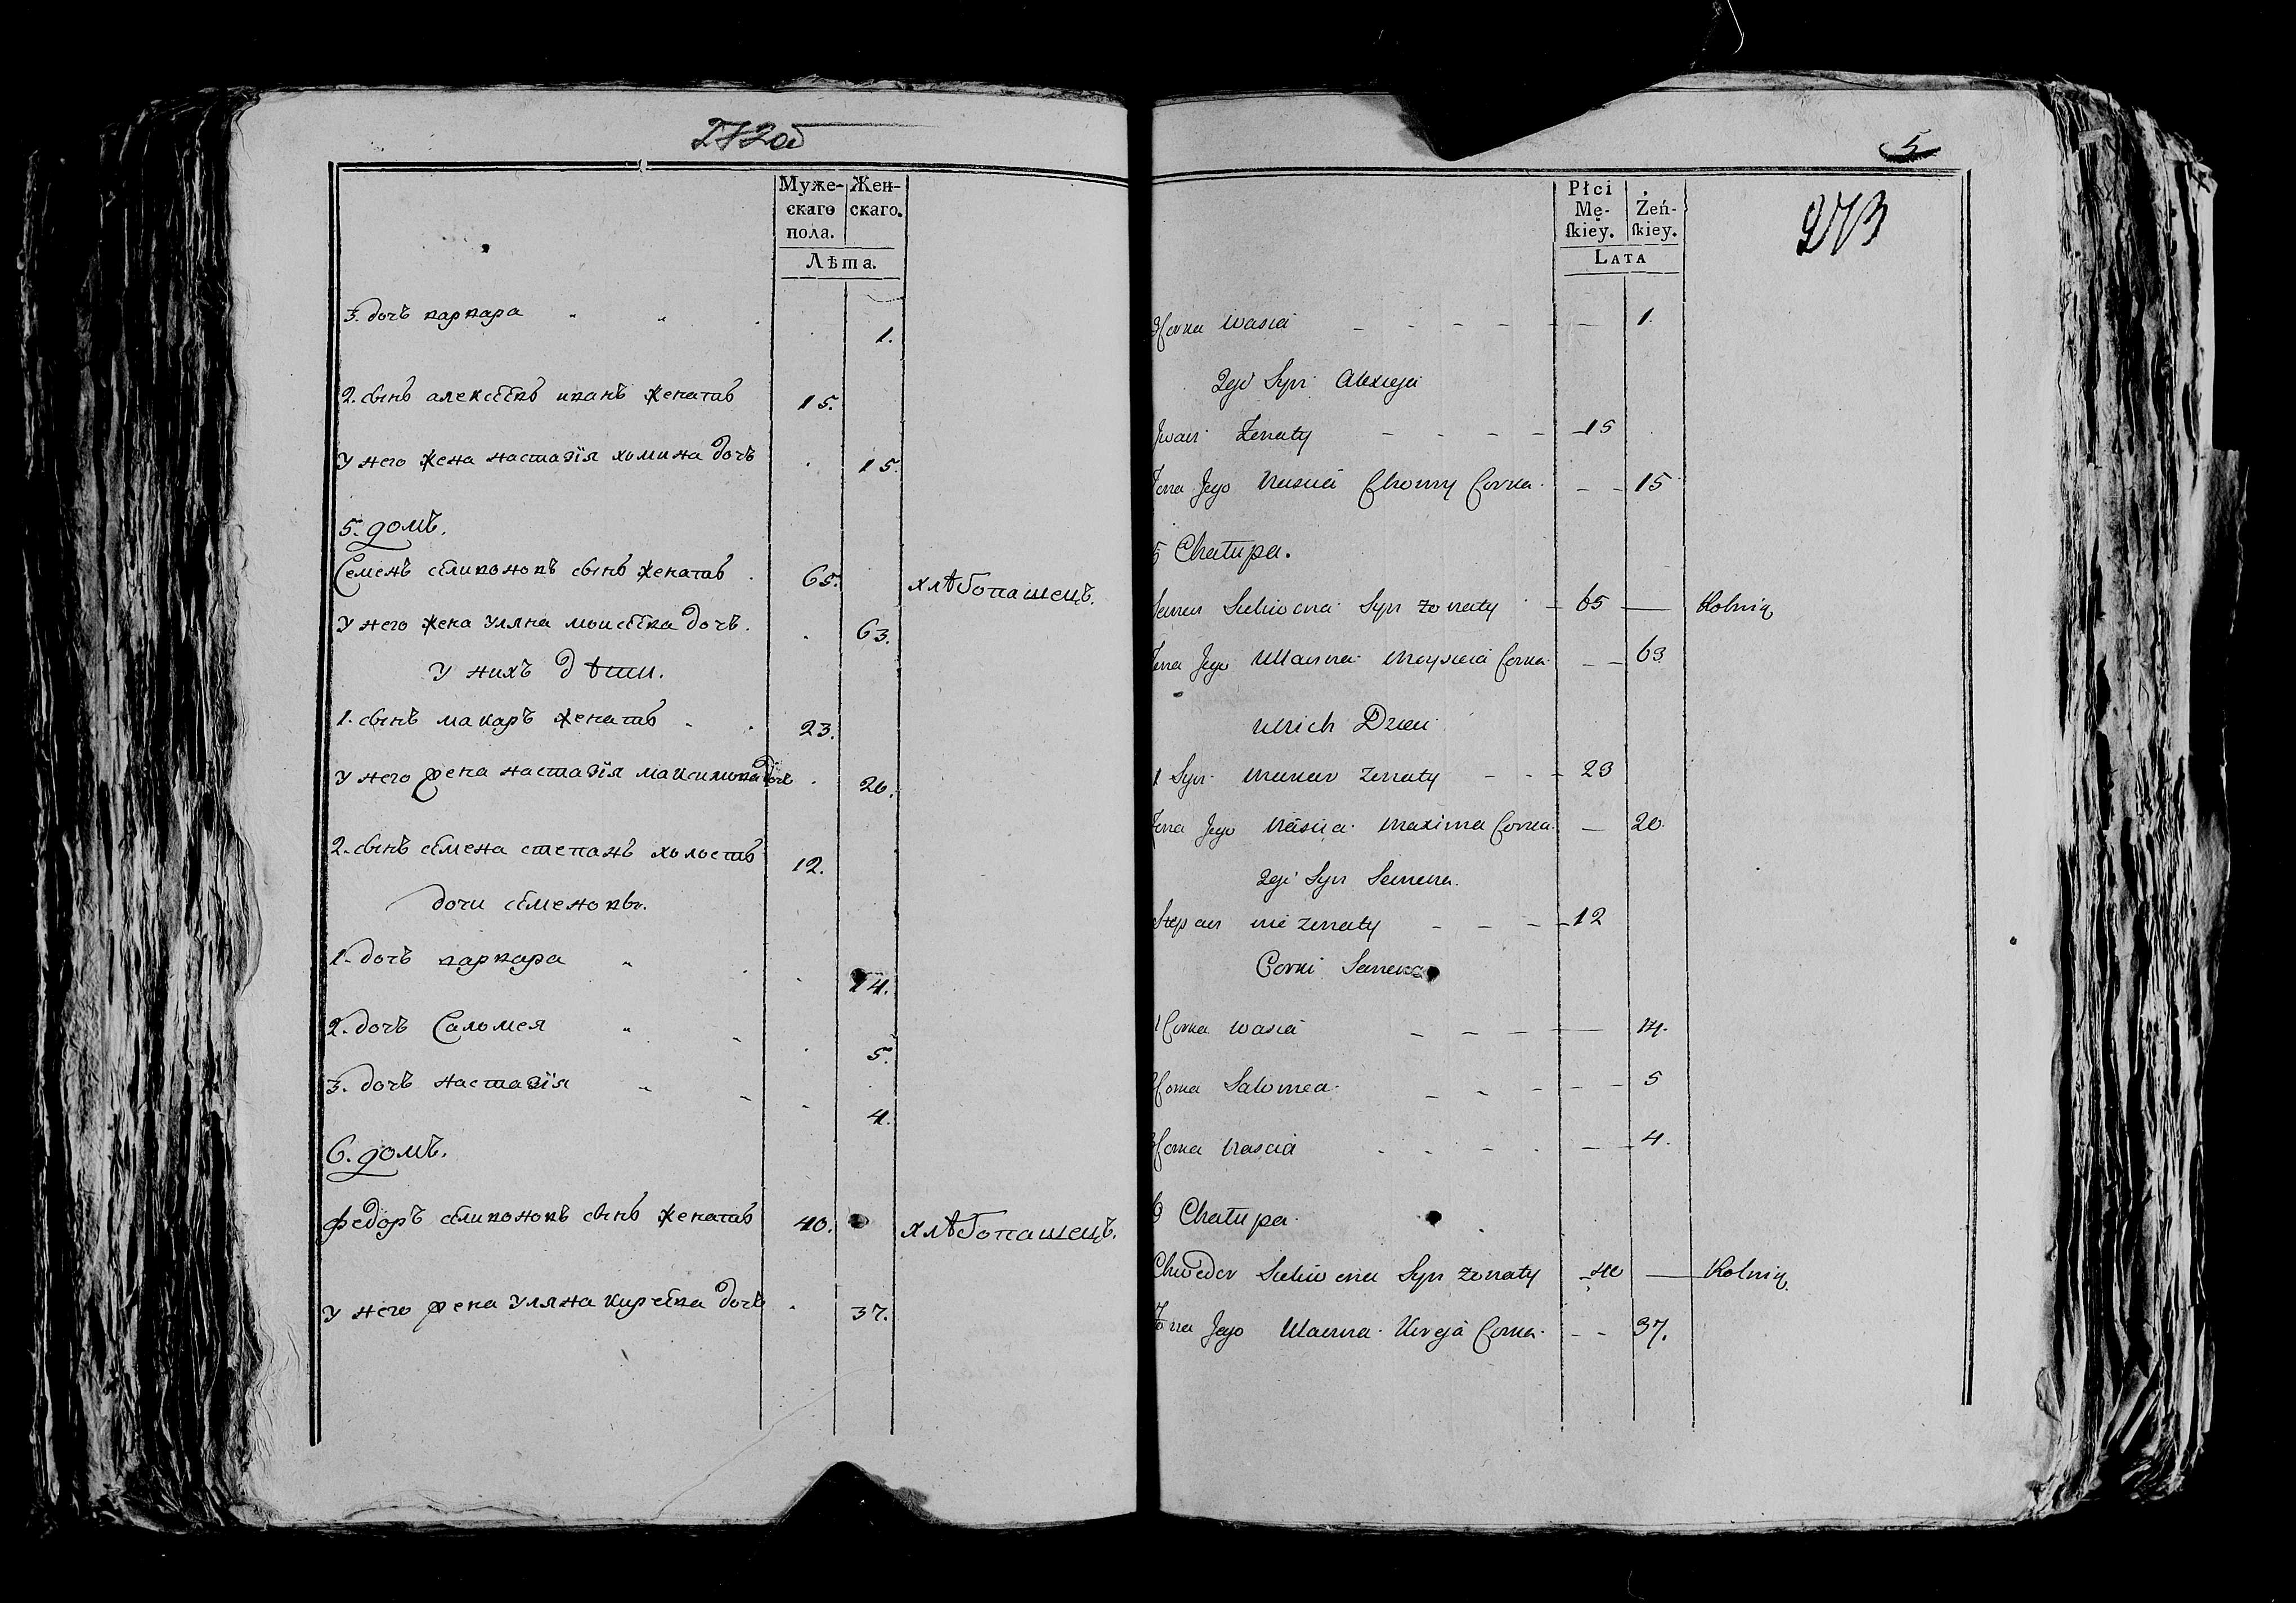 272об
Муже-
скаго
пола.
Жен-
скаго.
Лѣта.
3. дочь варвара 1.
2. сынъ алексѣевъ иванъ женатъ 15.
у него жена настазїя хомина дочь 15.
5. домъ.
Семенъ селивоновъ сынъ женатъ 65. хлѣбопашецъ.
у него жена уляна моисеева дочь. 63.
у нихъ дѣти.
1. сынъ макаръ женатъ 23.
у него жена настазїя максимова дочь 20.
2. сынъ семена степанъ холостъ 12.
дочи семеновы.
1. дочь варвара 14.
2. дочь Саломея 5.
3. дочь настазїя 4.
6. домъ.
федоръ селивоновъ сынъ женатъ 40. хлѣбопашецъ.
у него жена уляна кирѣева дочь 37.
5
273
Płci
Mę-
skiey.
Żeń-
skiey.
LATA
3 Corka Wasia 1.
2gi Syn Alexieja
Jwan Żenaty 15
Żona Jego Nascia Chomy Corka 15
5 Chałupa.
Semen Seliwona Syn żonaty 65 Rolnik
Żona Jego Ullanna Moysieia Corka 63
u nich Dzieci
1 Syn Makar żenaty 23
Żona Jego Nascia Maxima Corka 20.
2gi Syn Semena.
Stepan nie żenaty 12
Corki Semena
1 Corka Wasia 14.
2 Corka Salomea 5
3 Corka Nascia 4.
6 Chałupa
Chwedor Seliwona Syn żonaty 40 Rolnik
Żona Jego Ulanna Kireja Corka 37.